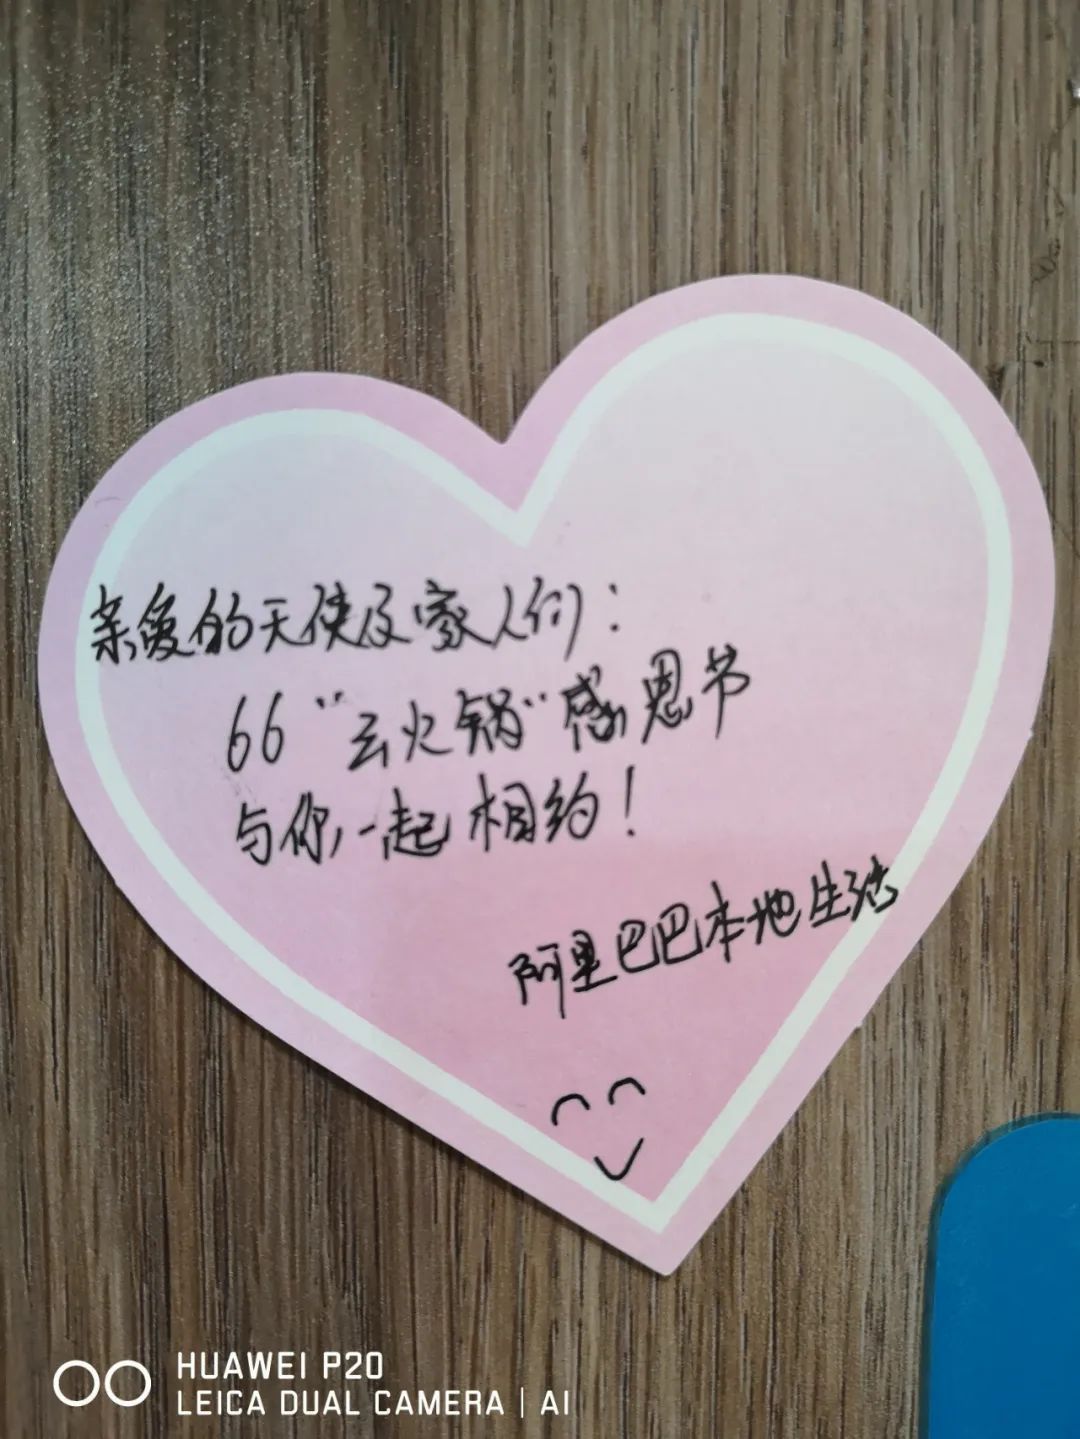 亲爱的天使及家人们：
66“云火锅”感恩节
与你一起相约！
阿里巴巴本地生活
HUAWEI P20
LEICA DUAL CAMERA | AI